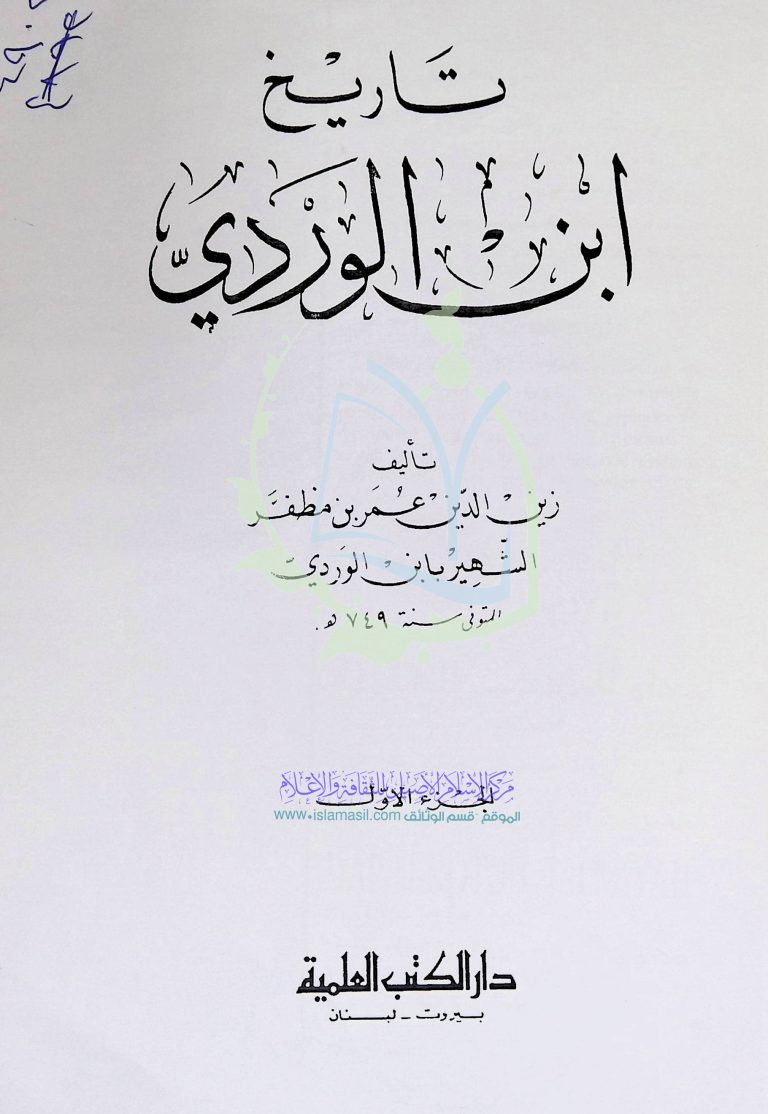 تَاريْخ
ابْن الوَرْديّ
تأليف
زين الدّين عُمَر بن مظفَّر
الشّهِيْر بابن الوَرديّ
المتوفى سنة ٧٤٩ هـ.
مركز الإسلام الأصيل للثقافة والإعلام
الجزء الأوّل
الموقع - قسم الوثائق www.islamasil.com
دار الكتب العلمية
بيروت - لبنان